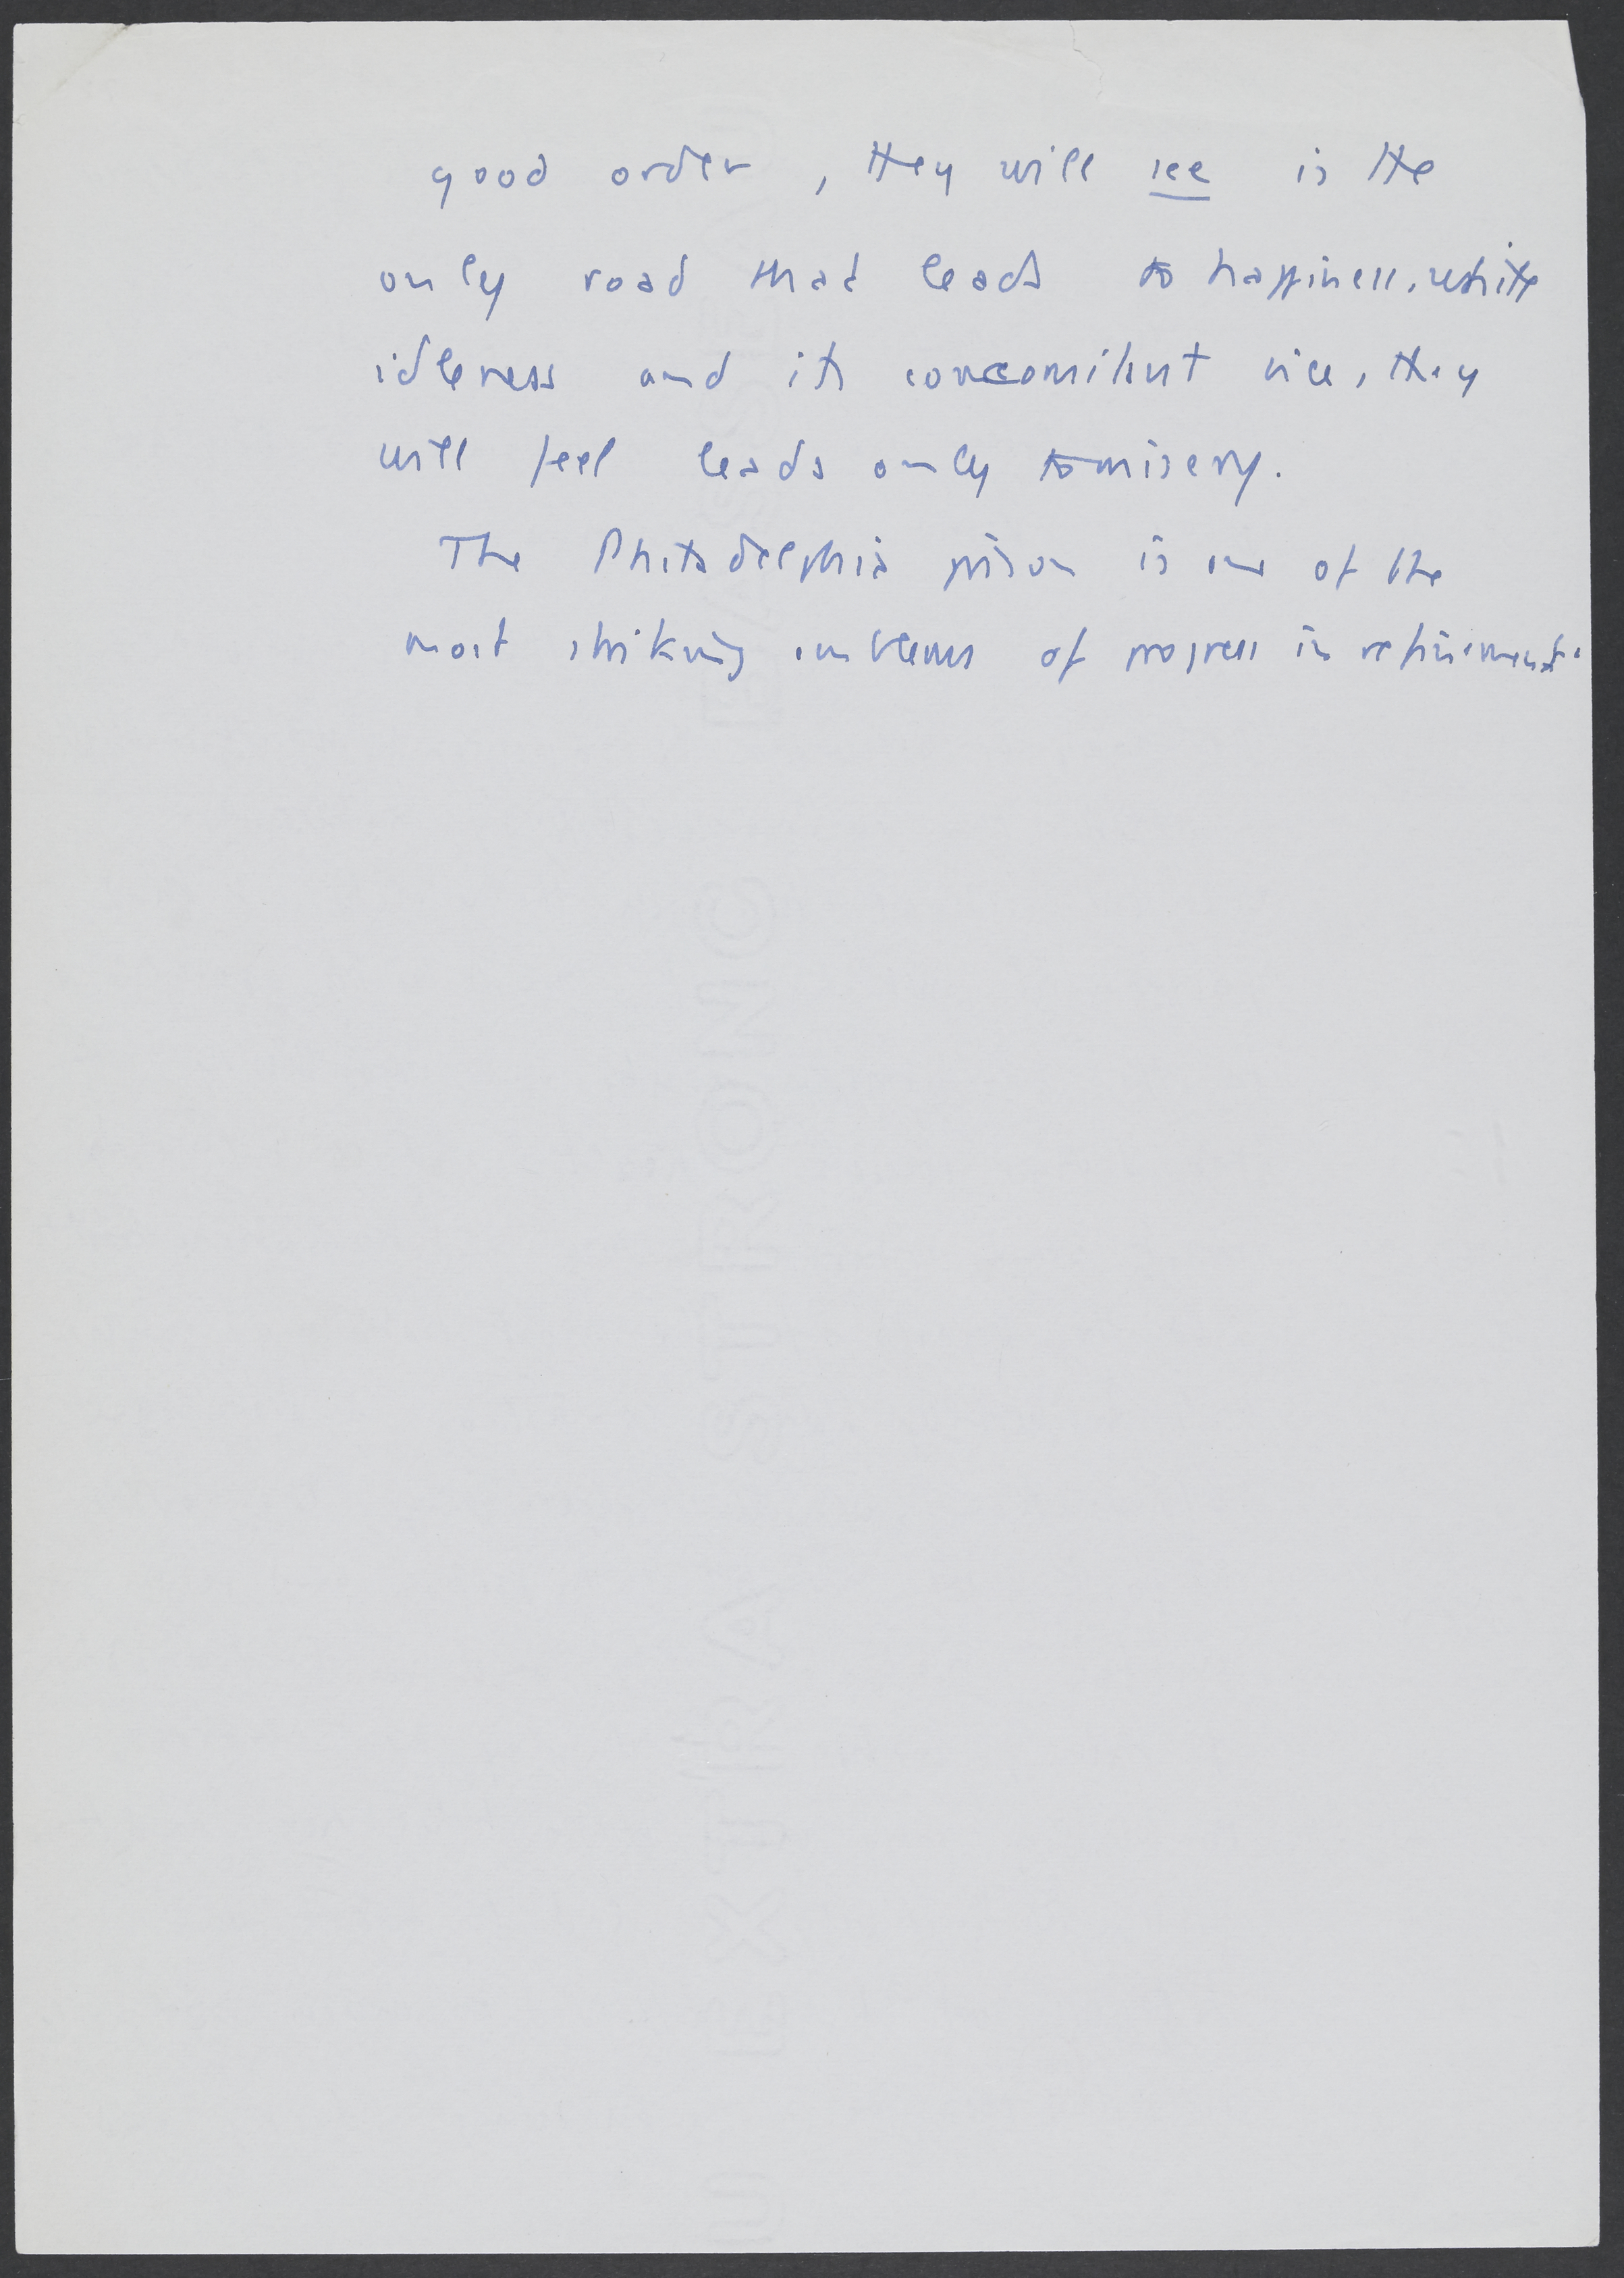 good order, they will see is the
only road that leads to happiness, while
idleness and its concomitant vice, they
will feel leads only to misery.
The Philadelphia prison is one of the
most striking emblems of progress in refinement.
EXTRA STRONG